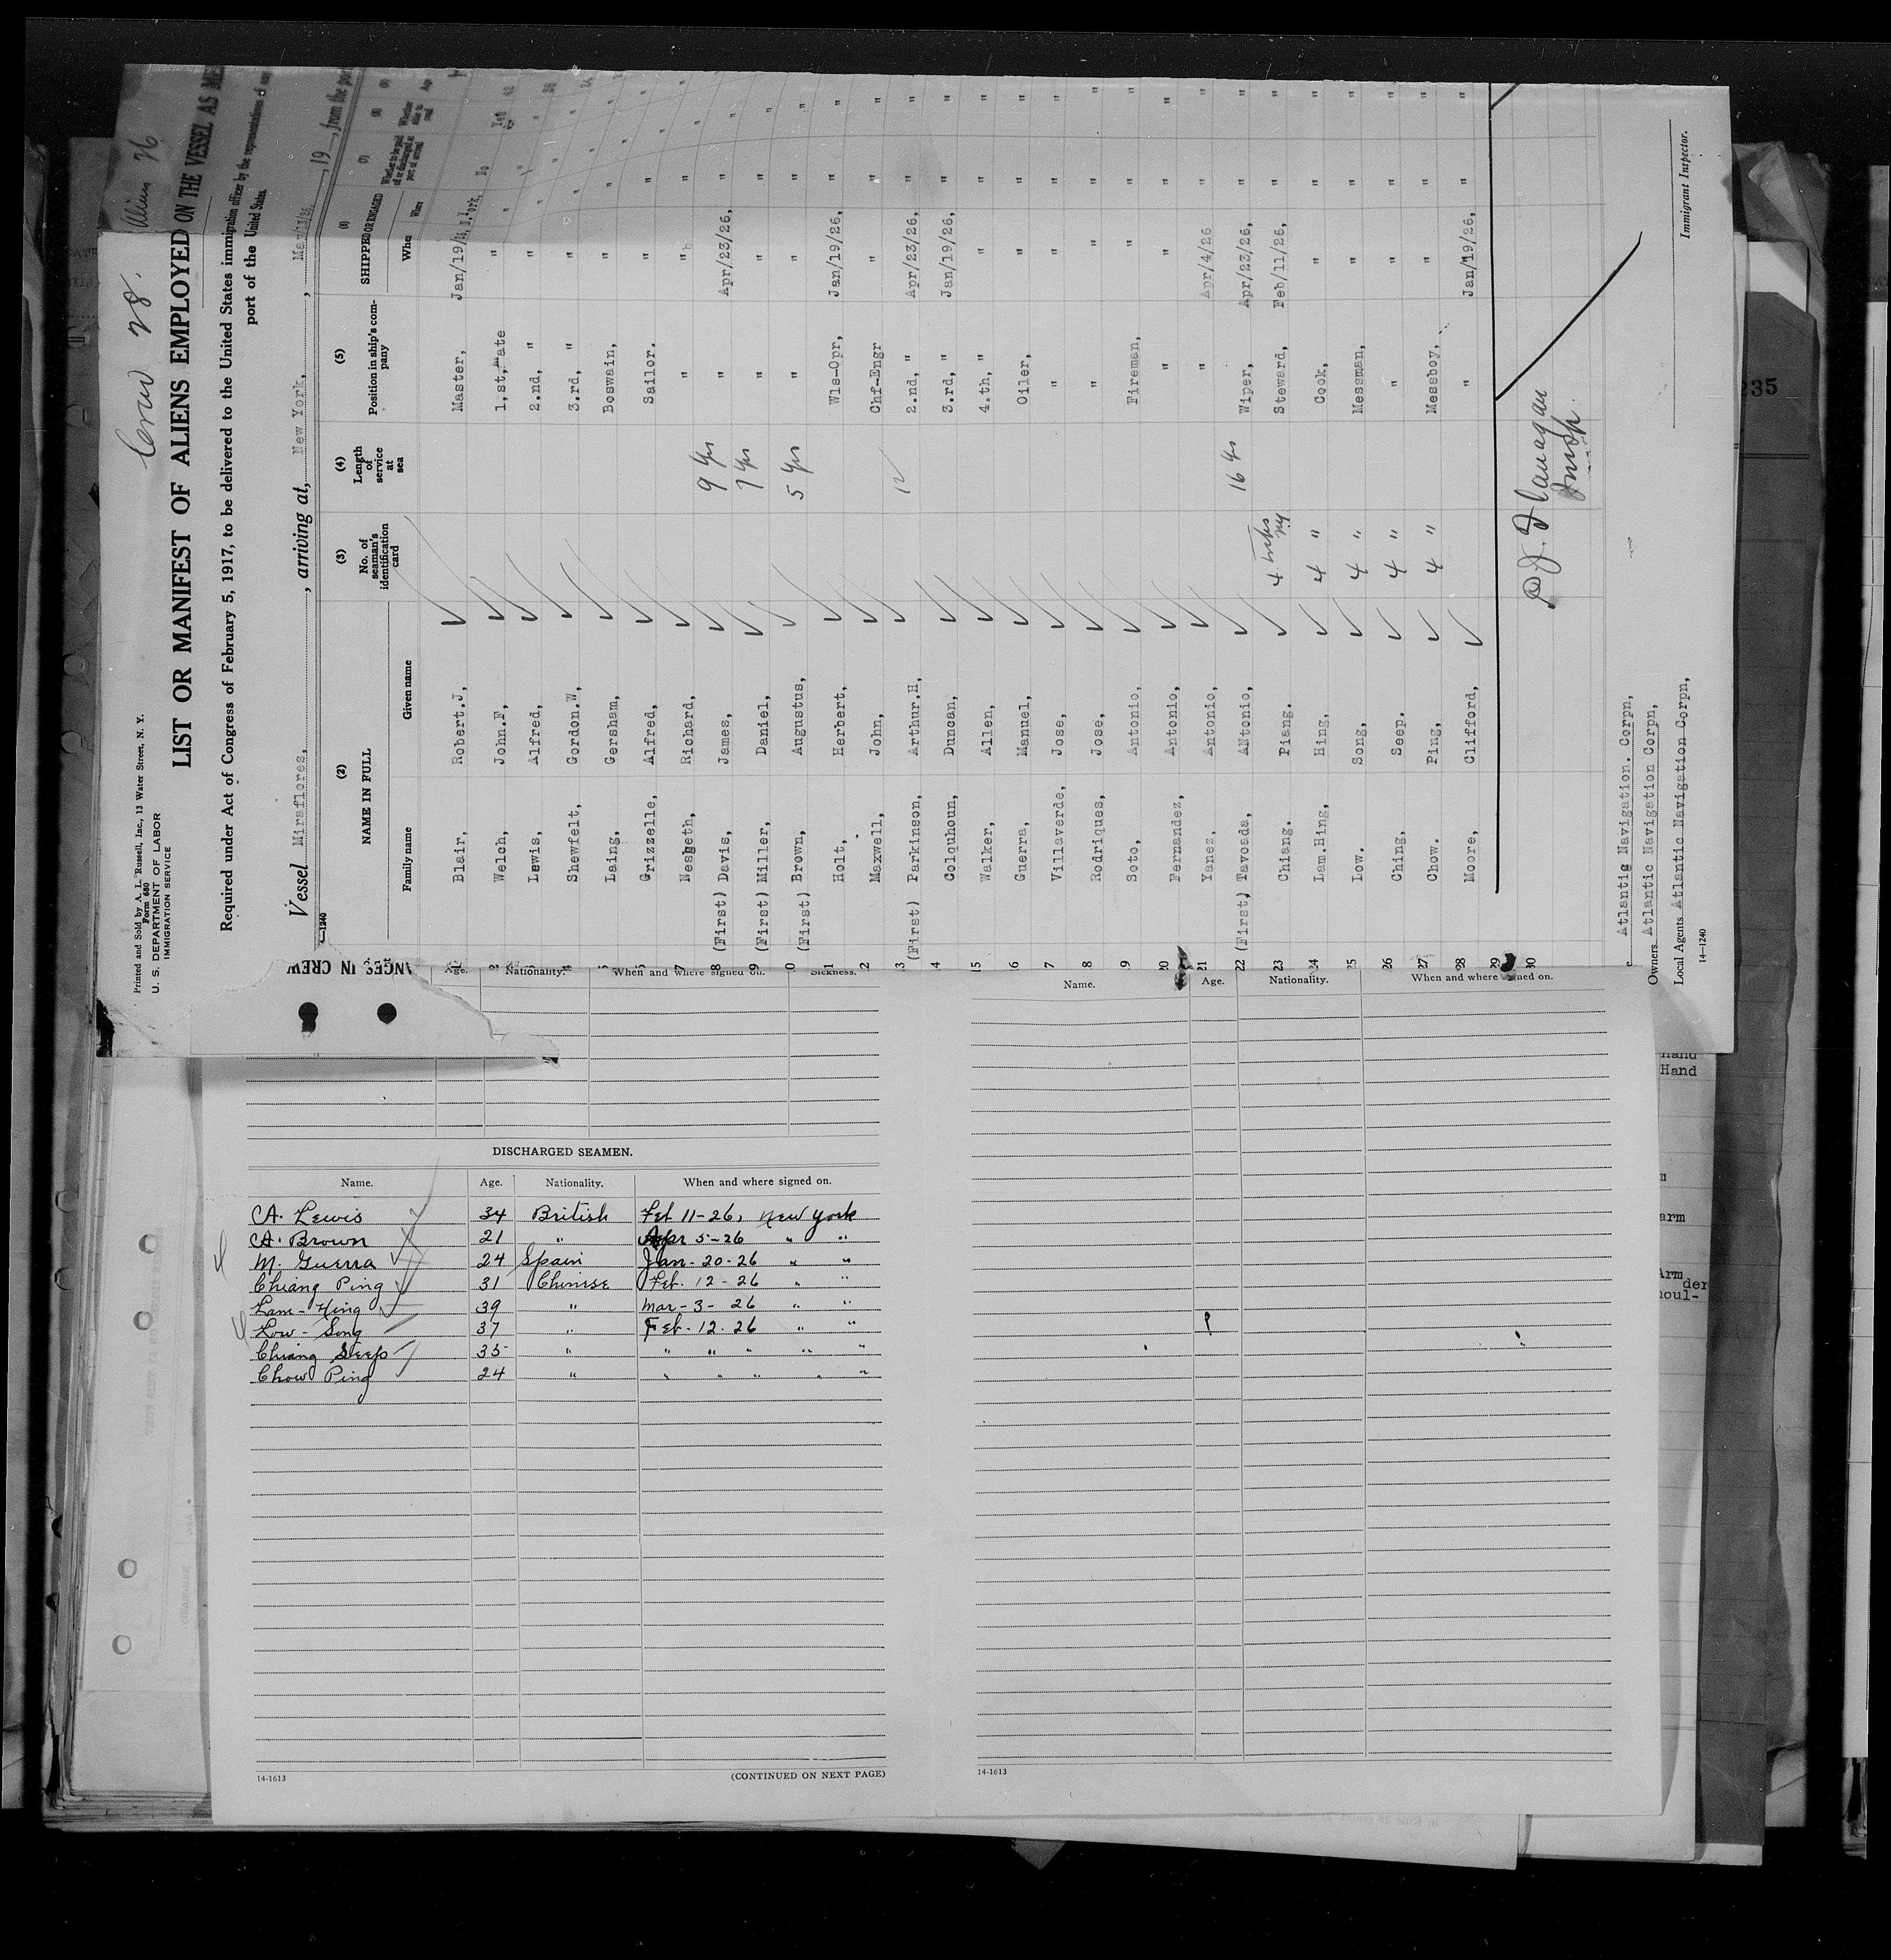 Crew 28. Aliens 26
Printed and Sold by A. L. Russell, Inc., 13 Water Street, N. Y.
Form 680
U. S. DEPARTMENT OF LABOR
IMMIGRATION SERVICE
LIST OR MANIFEST OF ALIENS EMPLOYED ON THE VESSEL AS ME
Required under Act of Congress of February 5, 1917, to be delivered to the United States immigration officer by the representatives of any
port of the United States
Vessel Miraflores, , arriving at, New York, , May/13/26, 19 , from the por
(2) (3) (4) (5) (6) (7) (8) (9)
NAME IN FULL No. of seaman's identification card Length of service at sea Position in ship's company SHIPPED OR ENGAGED Whether to be paid off or discharged at port of arrival Whether able to read Age
Family name Given name When Where
1 Blair, Robert.J, Master, Jan/19/26, N.York, No
2 Welch, John.F, 1.st,Mate " " "
3 Lewis, Alfred, 2.nd, " " " "
4 Shewfelt, Gordon.W, 3.rd, " " " "
5 Laing, Gersham, Boswain, " " "
6 Grizzelle, Alfred, Sailor. " " "
7 Nesbeth, Richard, " " " "
8 (First) Davis, James, 9 yrs " Apr/23/26, " "
9 (First) Miller, Daniel, 7 yrs " " " "
0 (First) Brown, Augustus, 5 yrs " " " "
1 Holt, Herbert, Wls-Opr, Jan/19/26, " "
2 Maxwell, John, Chf-Engr " " "
3 (First) Parkinson, Arthur.H, 12 2.nd, " Apr/23/26, " "
4 Colquhoun, Duncan, 3.rd, " Jan/19/26, " "
15 Walker, Allen, 4.th, " " " "
16 Guerra, Manuel, Oiler, " " "
17 Villaverde, Jose, " " " "
18 Rodriques, Jose, " " " "
19 Soto, Antonio, Fireman, " " "
20 Fernandez, Antonio, " " " "
21 Yanez, Antonio, " Apr/4/26 " "
22 (First) Tavoada, ANtonio, 16 yrs Wiper, Apr/23/26, " "
23 Chiang. Piang. 4 trips Steward, Feb/11/26, " "
24 Lam.Hing, Hing, 4 " Cook, " " "
25 Low. Song, 4 " Messman, " " "
26 Ching, Seep. 4 " " " " "
27 Chow. Ping, 4 " Messboy, " " "
28 Moore, Clifford, " Jan/19/26, " "
29
30
P. J. Flanagan
Insp.
Atlantic Navigation. Corpn,
Owners Atlantic Navigation Corpn,
Local Agents Atlantic Navigation Corpn,
Immigrant Inspector.
14—1240
ANGES IN CREW
Age. Nationality. When and where signed on. Sickness.
Name. Age. Nationality. When and where signed on.
DISCHARGED SEAMEN.
Name. Age. Nationality. When and where signed on.
A. Lewis 34 British Feb 11-26, New York
A. Brown 21 " Apr 5-26 " "
M. Guerra 24 Spain Jan-20-26 " "
Chiang Ping 31 Chinese Feb. 12-26 " "
Lam-Hing 39 " Mar-3-26 " "
Low-Song 37 " Feb-12-26 " "
Chiang Seep 35 " " " " " "
Chow Ping 24 " " " " " "
14-1613
(CONTINUED ON NEXT PAGE)
14-1613
235
Hand
Hand
arm
Arm
der
houl-